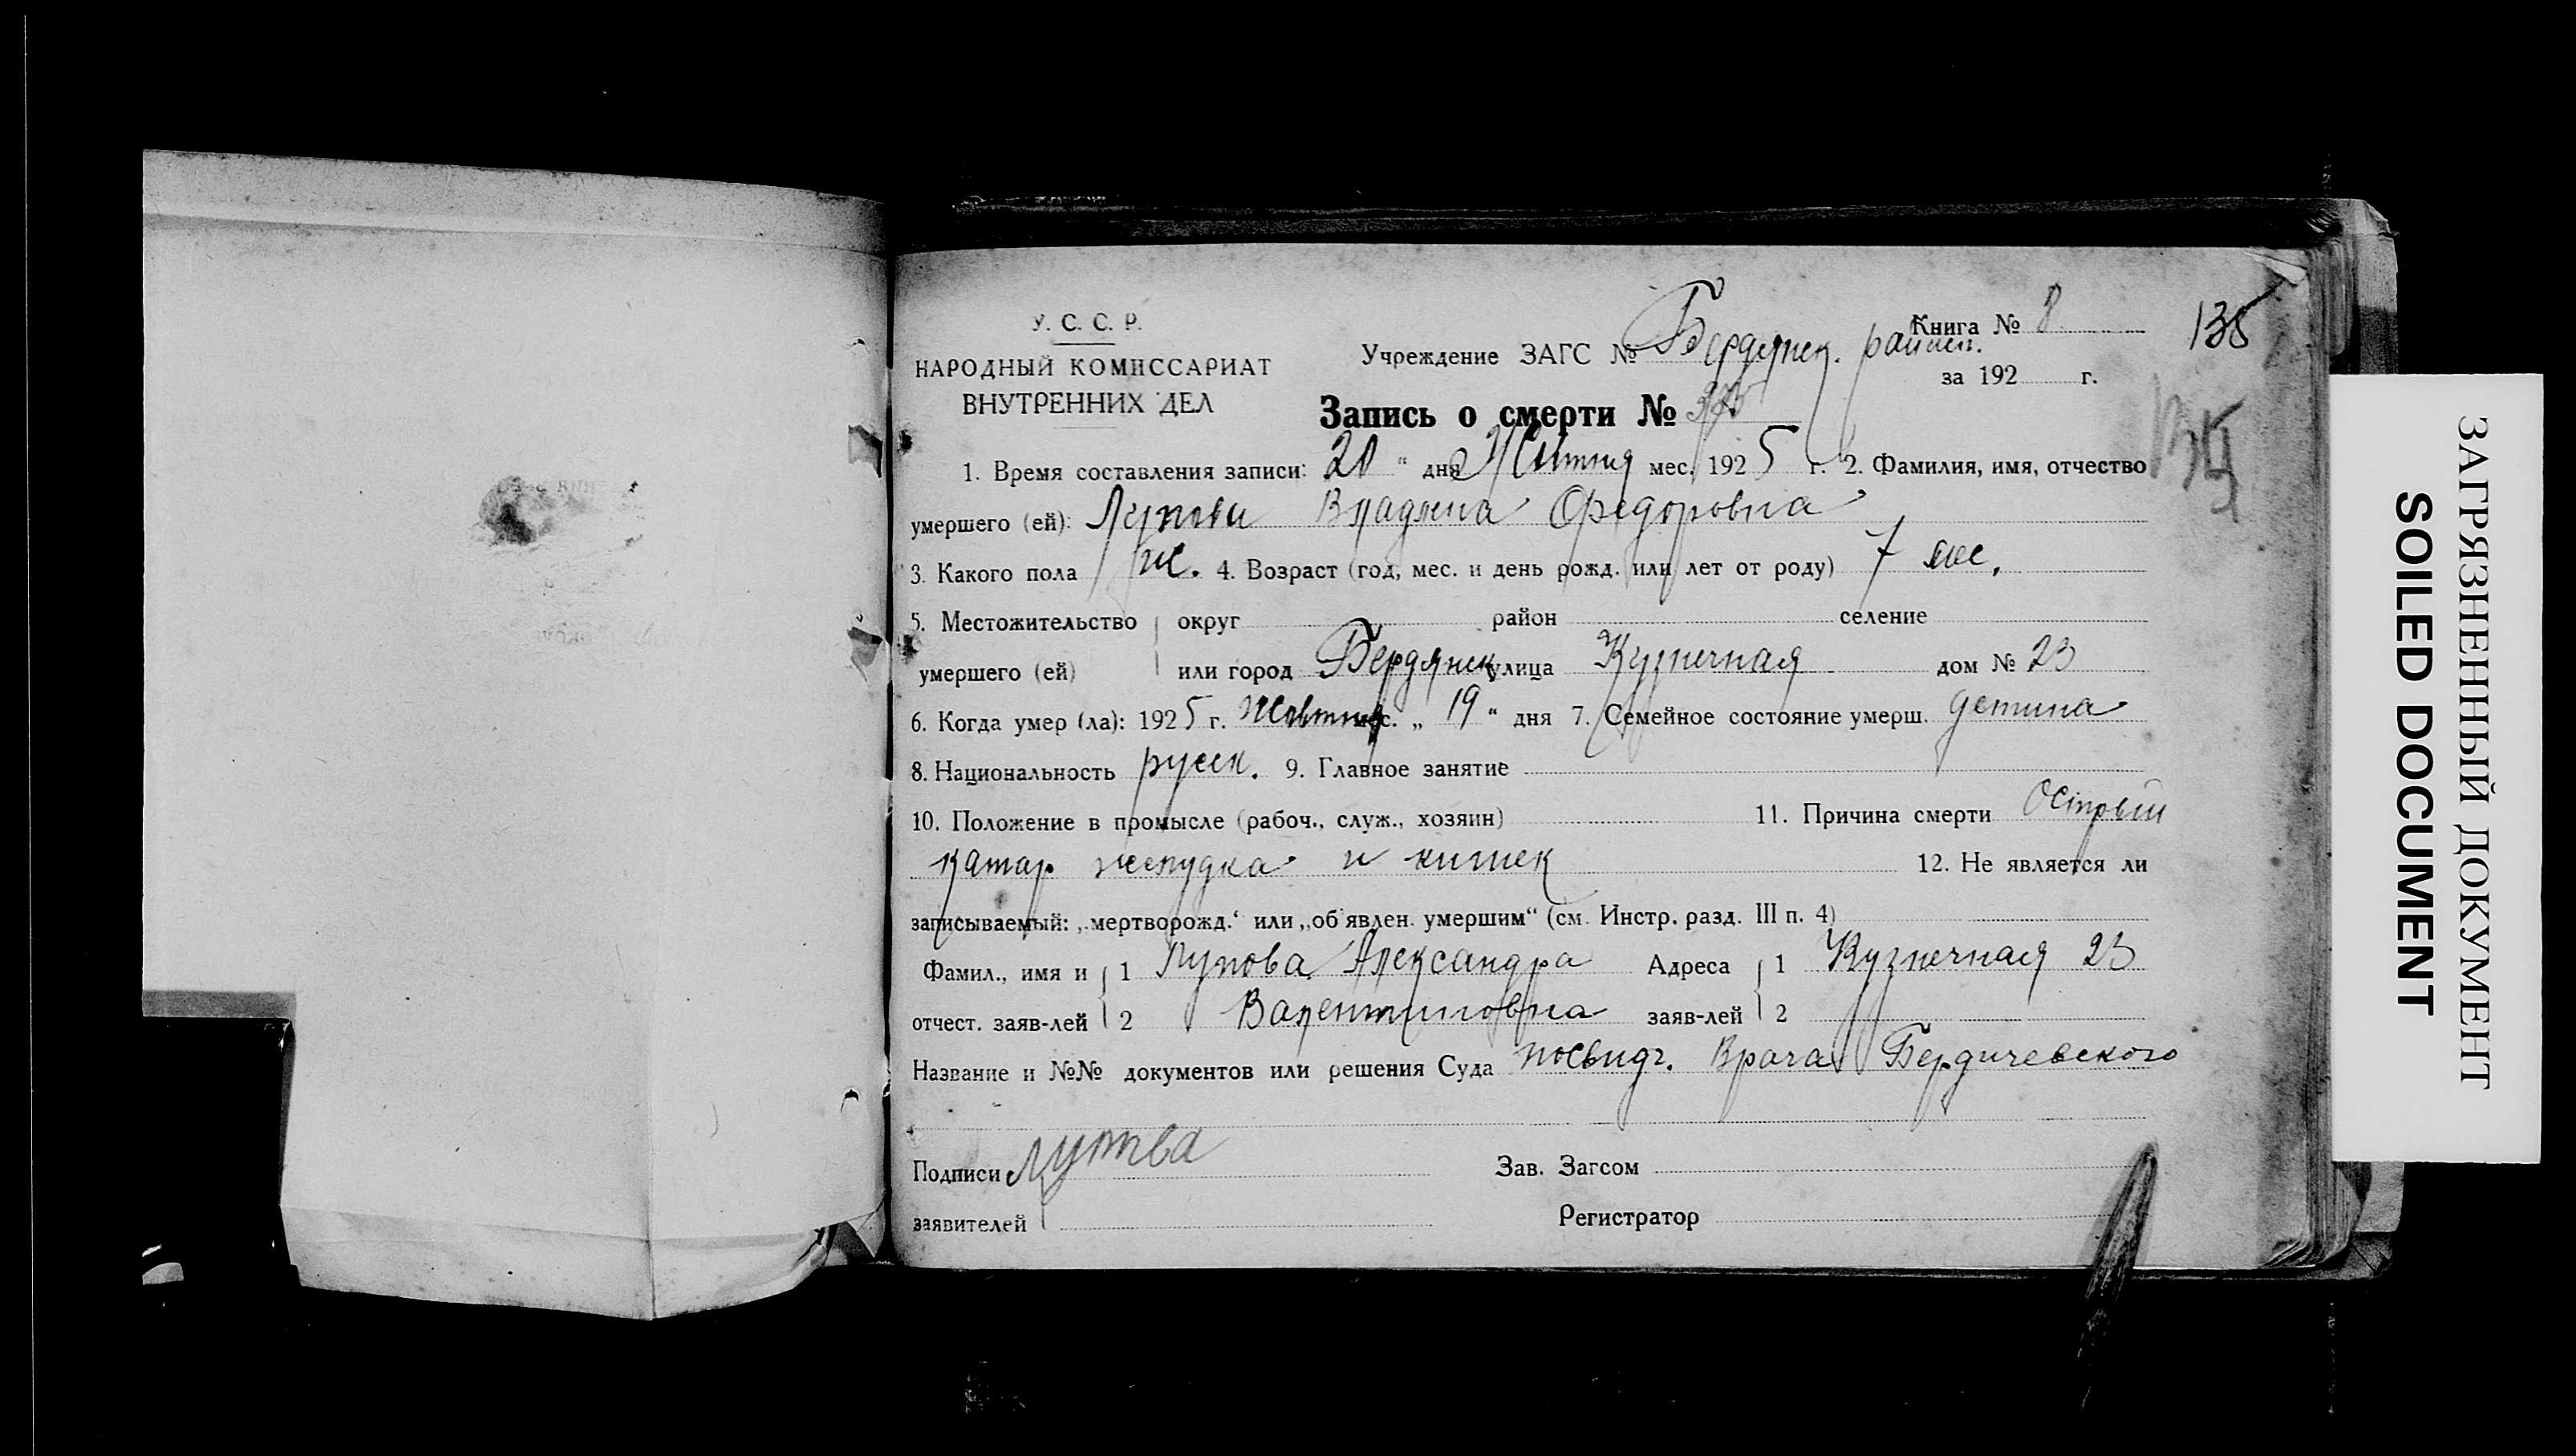 У. С. С. Р.
НАРОДНЫЙ КОМИССАРИАТ
ВНУТРЕННИХ ДЕЛ
Книга № 8
135
Учреждение ЗАГС № Бердянск. райисп.
за 192 г.
Запись о смерти №
1. Время составления записи: 20 " дня Жовтня мес. 1925 г. 2. Фамилия, имя, отчество
умершего (ей): Владлена Федоровна
3. Какого пола ж. 4. Возраст (год, мес. и день рожд. или лет от роду) 7 мес.
5. Местожительство округ район селение
умершего (ей) или город Бердянск улица Кузнечная дом № 23
6. Когда умер (ла): 1925 г. Жовтня мес. „ 19 " дня 7. Семейное состояние умерш. детина
8. Национальность русск. 9. Главное занятие
10. Положение в промысле (рабоч., служ., хозяин) 11. Причина смерти Острый
катар желудка и кишек 12. Не является ли
записываемый: „мертворожд.“ или „об'явлен. умершим“ (см. Инстр. разд. III п. 4)
Фамил., имя и 1 Александра Адреса 1 Кузнечная 23
отчест. заяв-лей 2 Валентиновна заяв-лей 2
Название и №№ документов или решения Суда посвидч. Врача Бердичевского
Подписи Зав. Загсом
заявителей Регистратор
ЗАГРЯЗНЕННЫЙ ДОКУМЕНТ
SOILED DOCUMENT